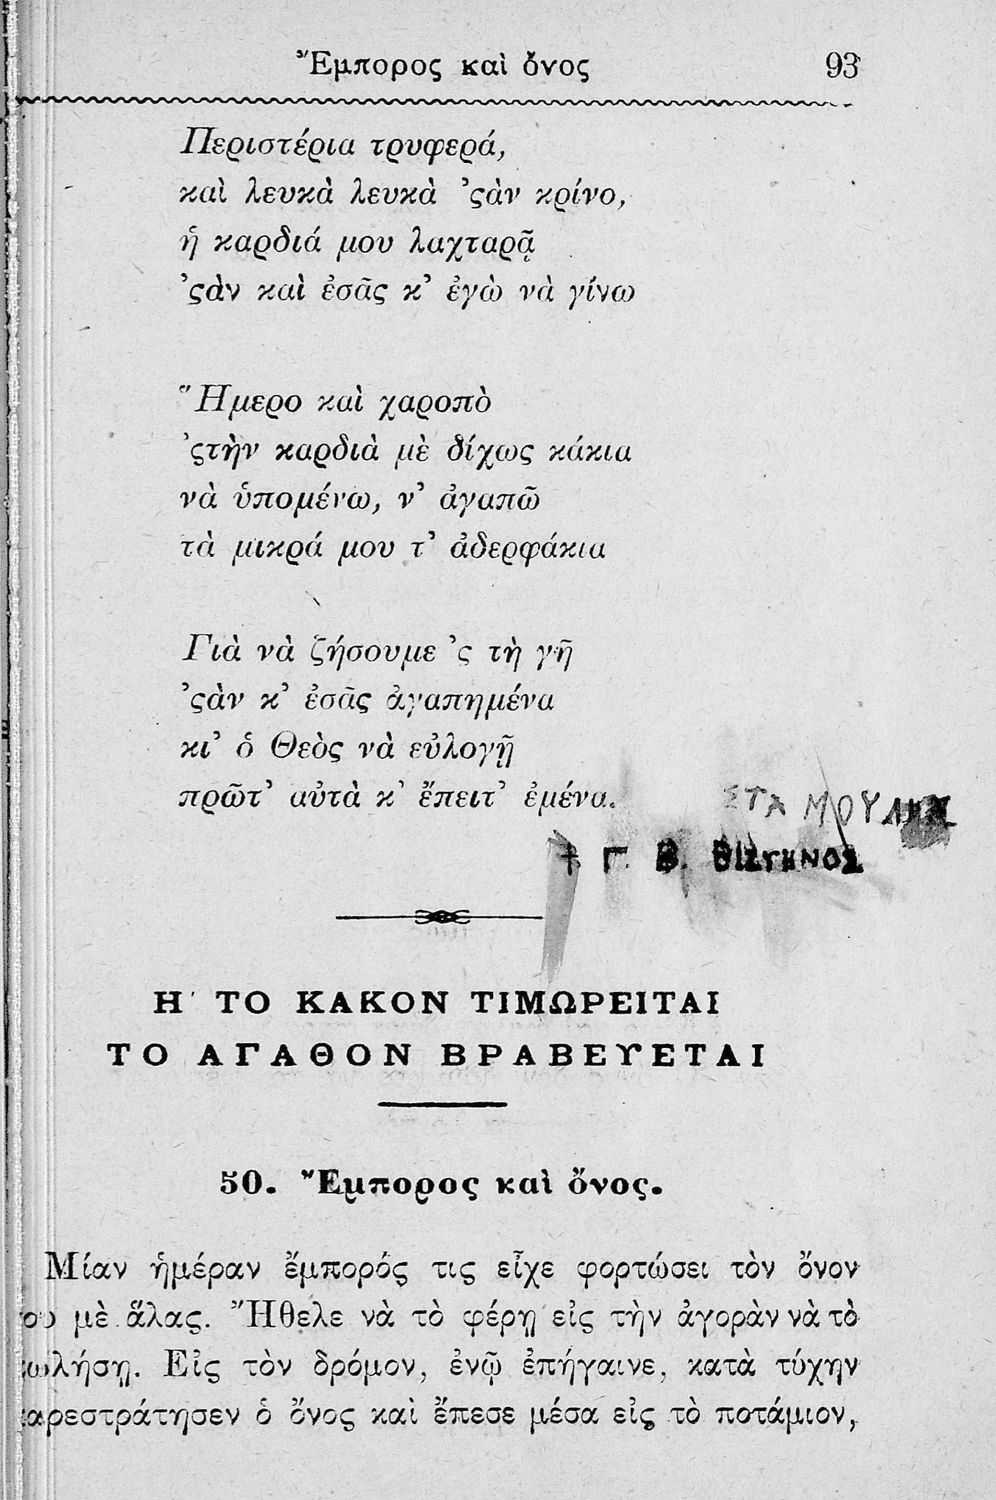 Ἔμπορος καὶ ὄνος 93
Περιστέρια τρυφερά,
καὶ λευκὰ λευκὰ ’ςὰν κρίνο,
ἡ καρδιά μου λαχταρᾷ
’ςὰν καὶ ἐσᾶς κ’ ἐγὼ νὰ γίνω
Ἥμερο καὶ χαροπὸ
’ςτὴν καρδιὰ μὲ δίχως κάκια
νὰ ὑπομένω, ν’ ἀγαπῶ
τὰ μικρά μου τ’ ἀδερφάκια
Γιὰ νὰ ζήσουμε ’ς τὴ γῆ
’ςὰν κ’ ἐσᾶς ἀγαπημένα
κι’ ὁ Θεὸς νὰ εὐλογῇ
πρῶτ’ αὐτὰ κ’ ἔπειτ’ ἐμένα.
ΣΤΑ
† Γ. Β. ΒΙΖΥΗΝΟΣ
Η΄ ΤΟ ΚΑΚΟΝ ΤΙΜΩΡΕΙΤΑΙ
ΤΟ ΑΓΑΘΟΝ ΒΡΑΒΕΥΕΤΑΙ
50. Ἔμπορος καὶ ὄνος.
Μίαν ἡμέραν ἔμπορός τις εἶχε φορτώσει τὸν ὄνον
του μὲ ἅλας. Ἤθελε νὰ τὸ φέρῃ εἰς τὴν ἀγορὰν νὰ τὸ
πωλήσῃ. Εἰς τὸν δρόμον, ἐνῷ ἐπήγαινε, κατὰ τύχην
παρεστράτησεν ὁ ὄνος καὶ ἔπεσε μέσα εἰς τὸ ποτάμιον,